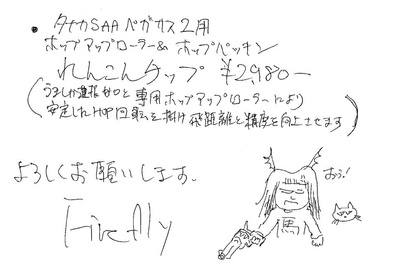 ・タナカSAA ペガサス2用
ホップアップローラー& ホップパッキン
れんこんチップ ¥2,980-
専用ホップアップローラーにより
安定したHOP回転を掛け飛距離と精度を向上させます
よろしくお願いします。
Firefly
おぅ!
馬